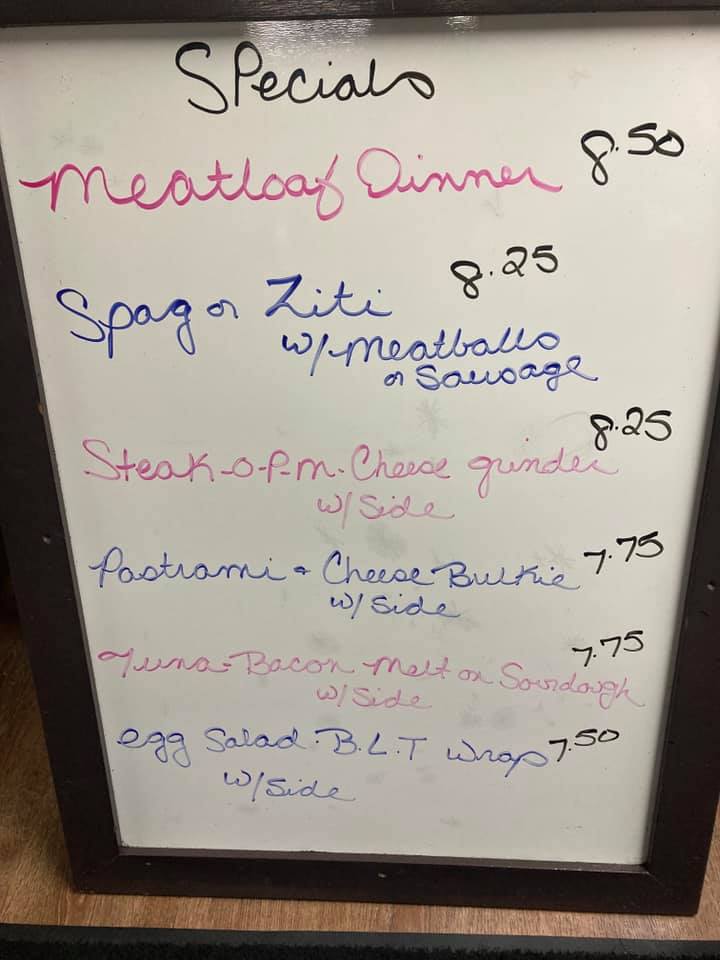 Specials
Meatloaf Dinner 8.50
Spag or Ziti 8.25
w/ Meatballs
or Sausage
Steak-O-P.M. Cheese grinder 8.25
w/ Side
Pastrami & Cheese Bulkie 7.75
w/ Side
Tuna-Bacon Melt on Sourdough 7.75
w/ Side
egg Salad. B.L.T Wrap 7.50
w/ Side